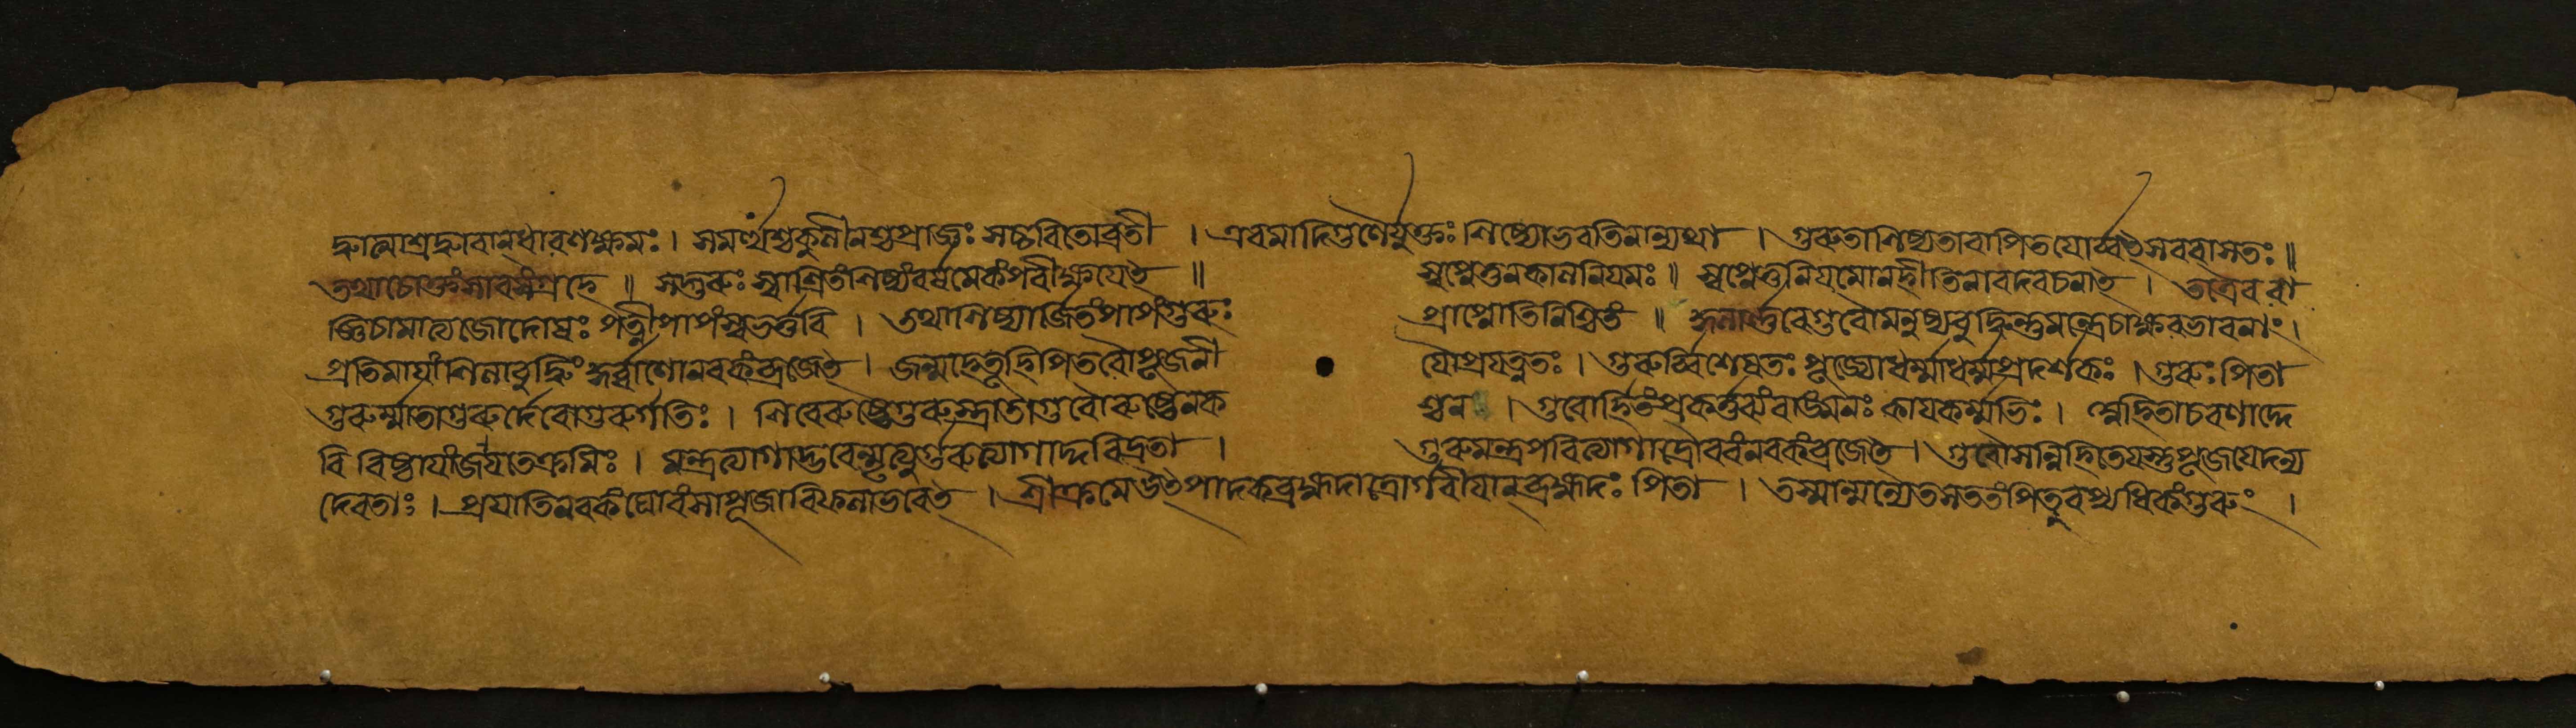 দ্ধাত্মাশ্রদ্ধাবান্ধারণক্ষমঃ । সমর্থশ্চকুলীনশ্চপ্রাজ্ঞঃ সচ্চরিতোব্রতী । এবমাদিগুণৈর্যুক্তঃ শিষ্যোভবতিনান্যথা । গুরুতাশিষ্যতাবাপিতযোর্ব্বৎসরবাসতঃ ॥
তথাচোক্তংসারসংগ্রহে ॥ সদ্গুরুঃ স্বাশ্রিতংশিষ্যংবর্ষমেকংপরীক্ষযেৎ ॥ স্বপ্নেতুনকালনিযমঃ ॥ স্বপ্নেতুনিযমোনহীতিনারদবচনাৎ । তত্রৈব রা
জ্ঞিচামাত্যজোদোষঃ পত্নীপাপংস্বভর্ত্তরি । তথাশিষ্যার্জিতংপাপংগুরুঃ প্রাপ্নোতিনিশ্চিতং ॥ জ্ঞানার্ণবেগুরোমনুষ্যবুদ্ধিন্তুমন্ত্রেচাক্ষরভাবনাং ।
প্রতিমাযাংশিলাবুদ্ধিংকুর্ব্বাণোনরকংব্রজেৎ । জন্মহেতূহিপিতরৌপূজনী যৌপ্রযত্নতঃ । গুরুর্ব্বিশেষতঃ পূজ্যোধর্ম্মাধর্ম্মপ্রদর্শকঃ । গুরুঃ পিতা
গুরুর্ম্মাতাগুরুর্দেবোগুরুর্গতিঃ । শিবেরুষ্টেগুরুস্ত্রাতাগুরোরুষ্টেনক শ্চন । গুরোর্হিতংপ্রকর্ত্তব্যংবাঙ্মনঃ কাযকর্ম্মভিঃ । অহিতাচরণাদ্দে
বি বিষ্ঠাযাংজাযতেক্রমিঃ । মন্ত্রত্যাগাদ্ভবেন্মৃত্যুর্গুরুত্যাগাদ্দরিদ্রতা । গুরুমন্ত্রপরিত্যাগাদ্রৌরবংনরকংব্রজেৎ । গুরৌসন্নিহিতেযস্তুপূজযেদন্য
দেবতাঃ । প্রযাতিনরকংঘোরংসাপূজাবিফলাভবেৎ । শ্রীক্রমে উৎপাদকব্রহ্মদাত্রোর্গরীযান্ব্রহ্মদঃ পিতা । তস্মান্মন্যেতসততংপিতুরপ্যধিকংগুরুং ।